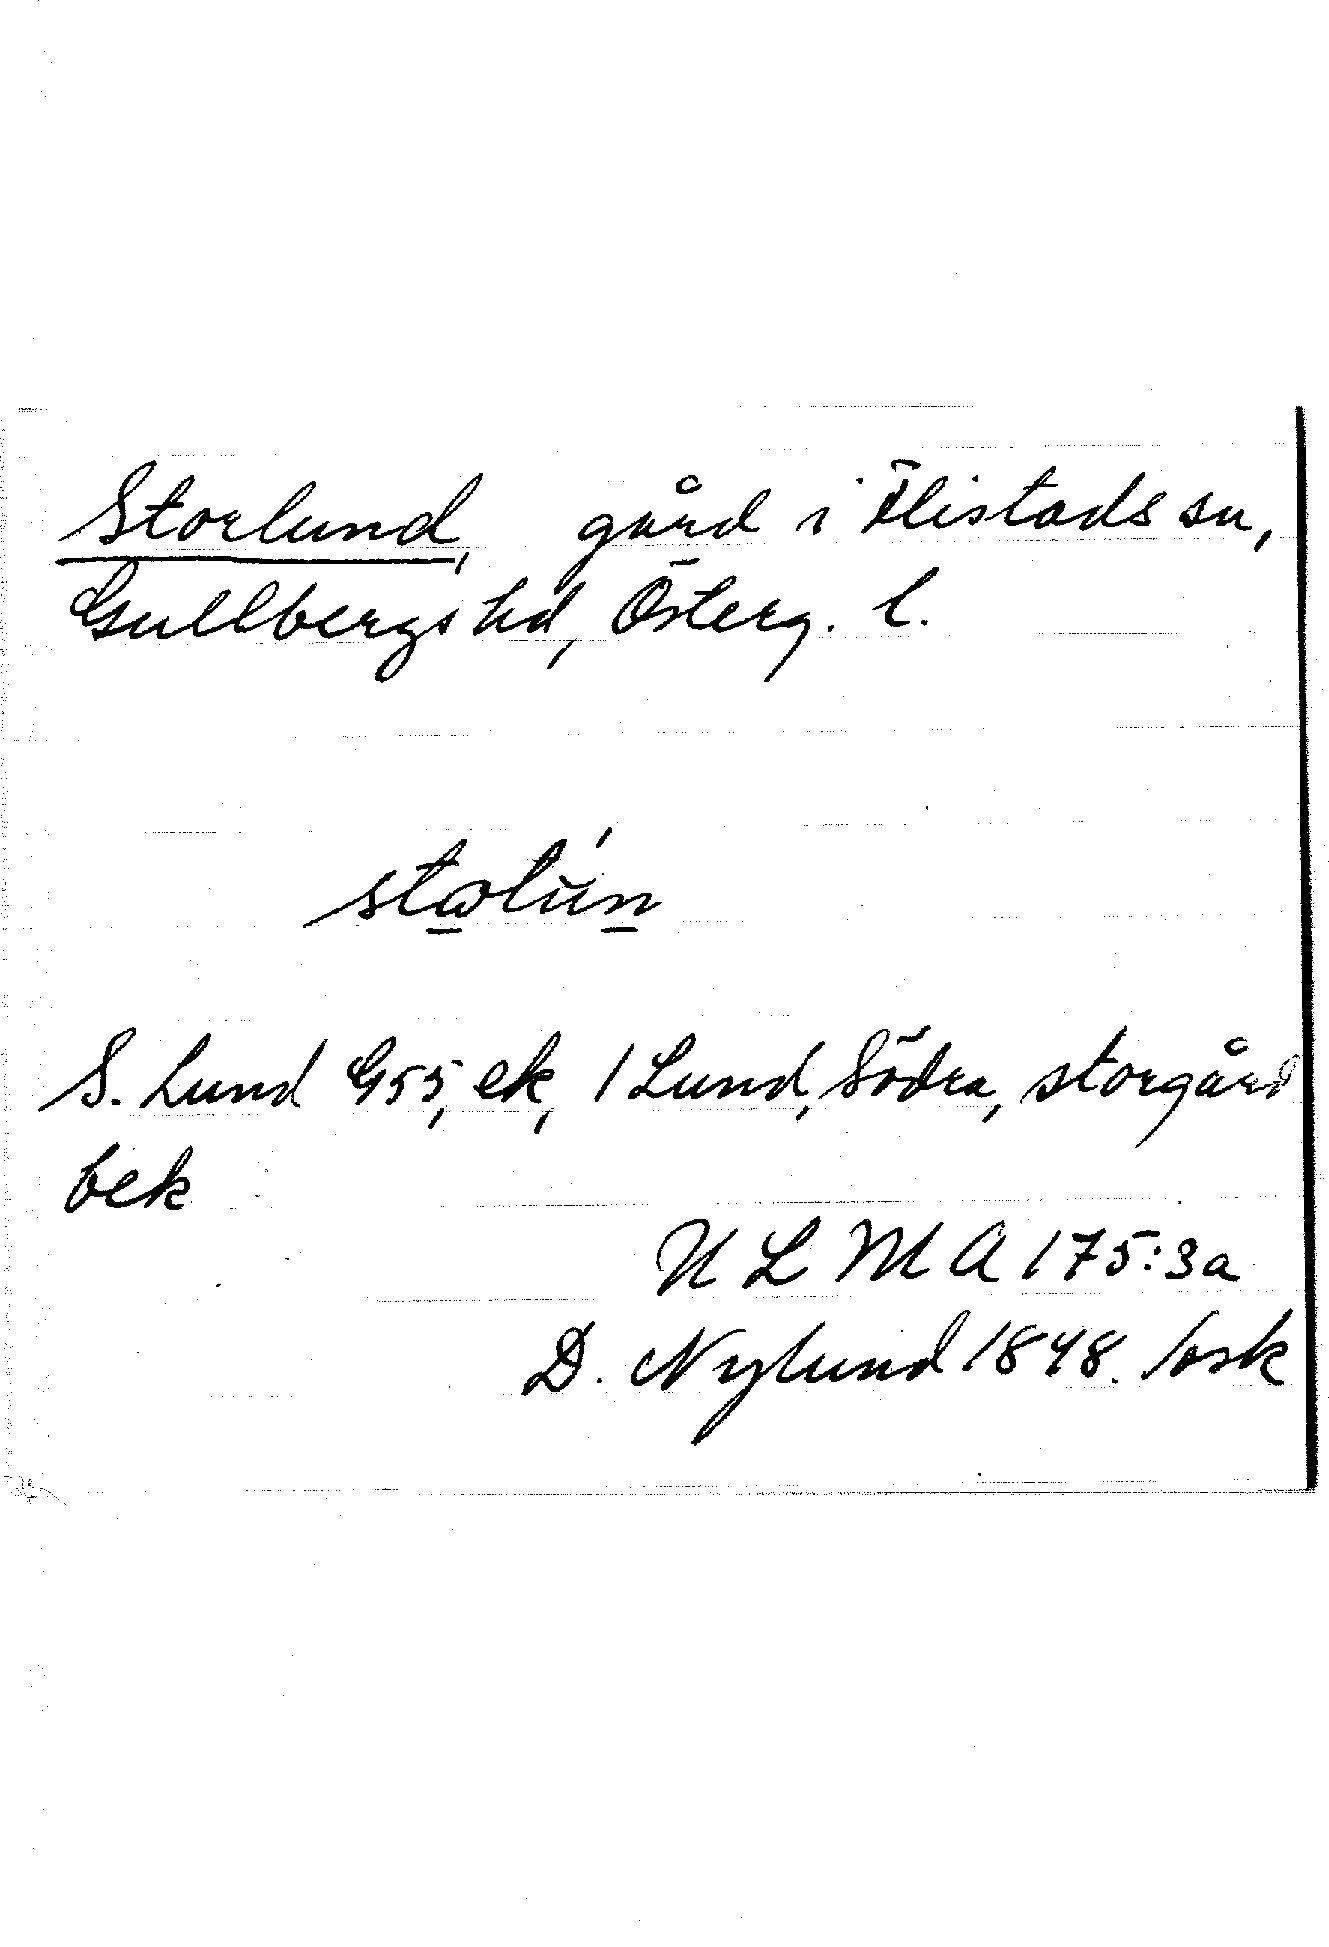 Storlund, gård i Flistads sn,
Gullbergs hd, Österg. l.
stωlún
S. Lund G55, ek, / Lund, Södra, storgård
bek
U L M A 175:3a
D. Nylund 1848. /osk